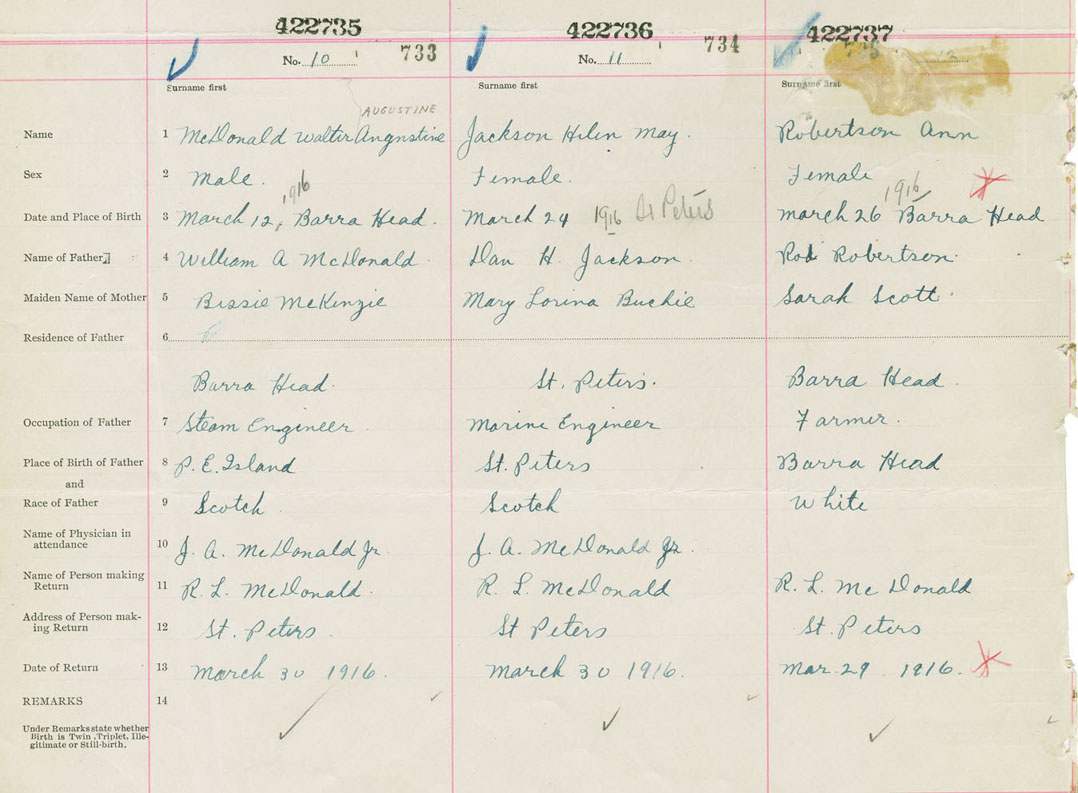 422735 422736 422737
No. 10 733 No. 11 734
Surname first Surname first Surname first
AUGUSTINE
Name 1 McDonald Walter Angnstine Jackson Helen May. Robertson Ann
Sex 2 Male. Female. Female
1916 1916
Date and Place of Birth 3 March 12, Barra Head. March 24 1916 St Peters March 26 Barra Head
Name of Father 4 William A McDonald Dan H. Jackson. Rod Robertson.
Maiden Name of Mother 5 Bessie McKenzie Mary Lorina Buchie Sarah Scott.
Residence of Father 6
Barra Head. St. Peters. Barra Head.
Occupation of Father 7 Steam Engineer. Marine Engineer Farmer.
Place of Birth of Father 8 P. E. Island St. Peters Barra Head
and
Race of Father 9 Scotch Scotch White
Name of Physician in
attendance 10 J. A. McDonald Jr. J. A. McDonald Jr.
Name of Person making
Return 11 R. L. McDonald. R. L. McDonald R. L. McDonald
Address of Person mak-
ing Return 12 St. Peters. St Peters St. Peters
Date of Return 13 March 30 1916. March 30 1916. Mar. 29. 1916.
REMARKS 14
Under Remarks state whether
Birth is Twin, Triplet, Ille-
gitimate or Still-birth.